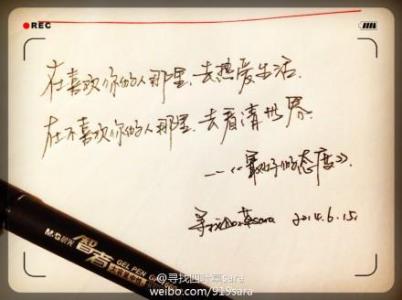 REC
在喜欢你的人那里,去热爱生活.
在不喜欢你的人那里,去看清世界.
——《最好的态度》.
寻找四叶草sara 2014.6.15.
M&G 晨光 智者 GEL PEN
@寻找四叶草sara
weibo.com/919sara